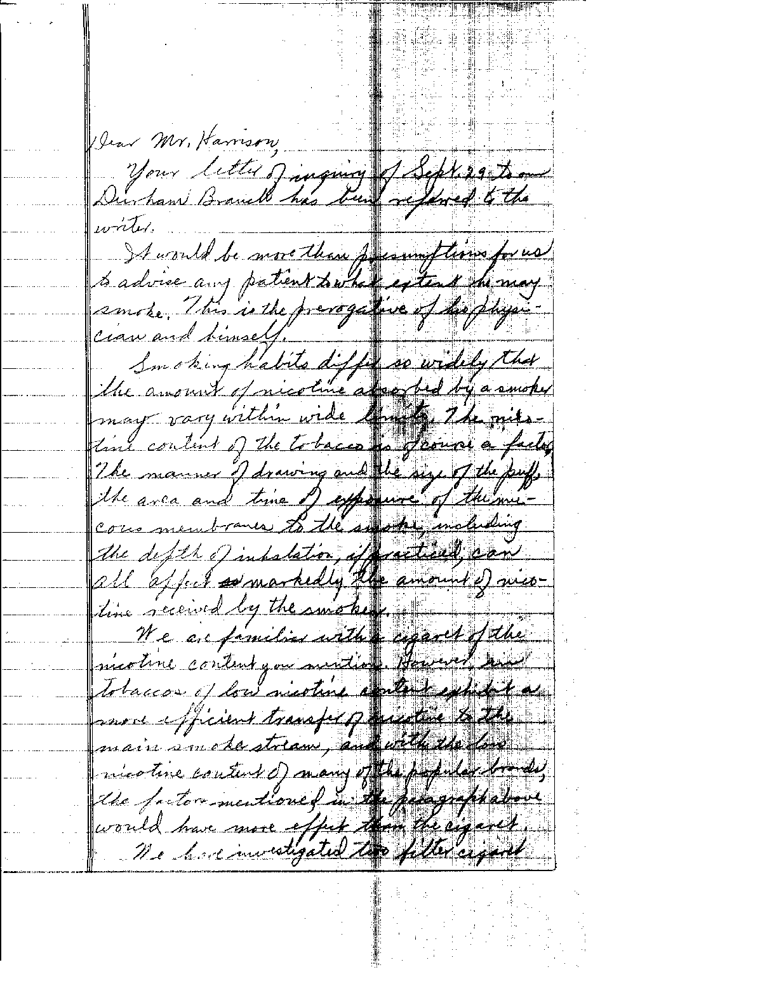 Dear Mr. Harrison,
Your letter of inquiry of Sept. 29 to our
Durham Branch has been referred to the
writer.
It would be more than presumptious for us
to advise any patient to what extent he may
smoke. This is the prerogative of his physi-
cian and himself.
Smoking habits differ so widely that
the amount of nicotine absorbed by a smoker
may vary within wide limits. The nico-
tine content of the tobacco is of course a factor.
The manner of drawing and the size of the puff,
the area and time of exposure of the mu-
cous membranes to the smoke, including
the depth of inhalation, if practiced, can
all affect markedly the amount of nico-
tine received by the smoker.
We are familiar with a cigaret of the
nicotine content you mention. However,
tobaccos of low nicotine content exhibit a
more efficient transfer of nicotine to the
main smoke stream, and with the low
nicotine content of many of the popular brands,
the factors mentioned in the paragraph above
would have more effect than the cigaret.
We have investigated two filter cigaret